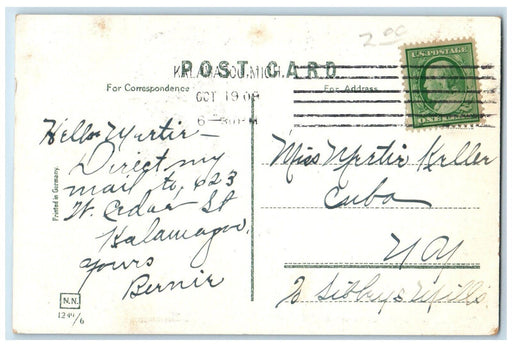 2.00
POST CARD
U.S. POSTAGE
KALAMAZOO, MICH.
For Correspondence
For Address
OCT 19 09
6-30 PM
Hello Myrtie —
Direct my
mail to, 623
W. Cedar St
Kalamazoo,
Yours
Bernie
Miss Myrtie Keller
Cuba
N Y
% Sibleys Mills
Printed in Germany.
N.N.